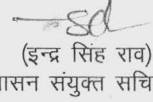 sd
(इन्द्र सिंह राव)
ासन संयुक्त सचि